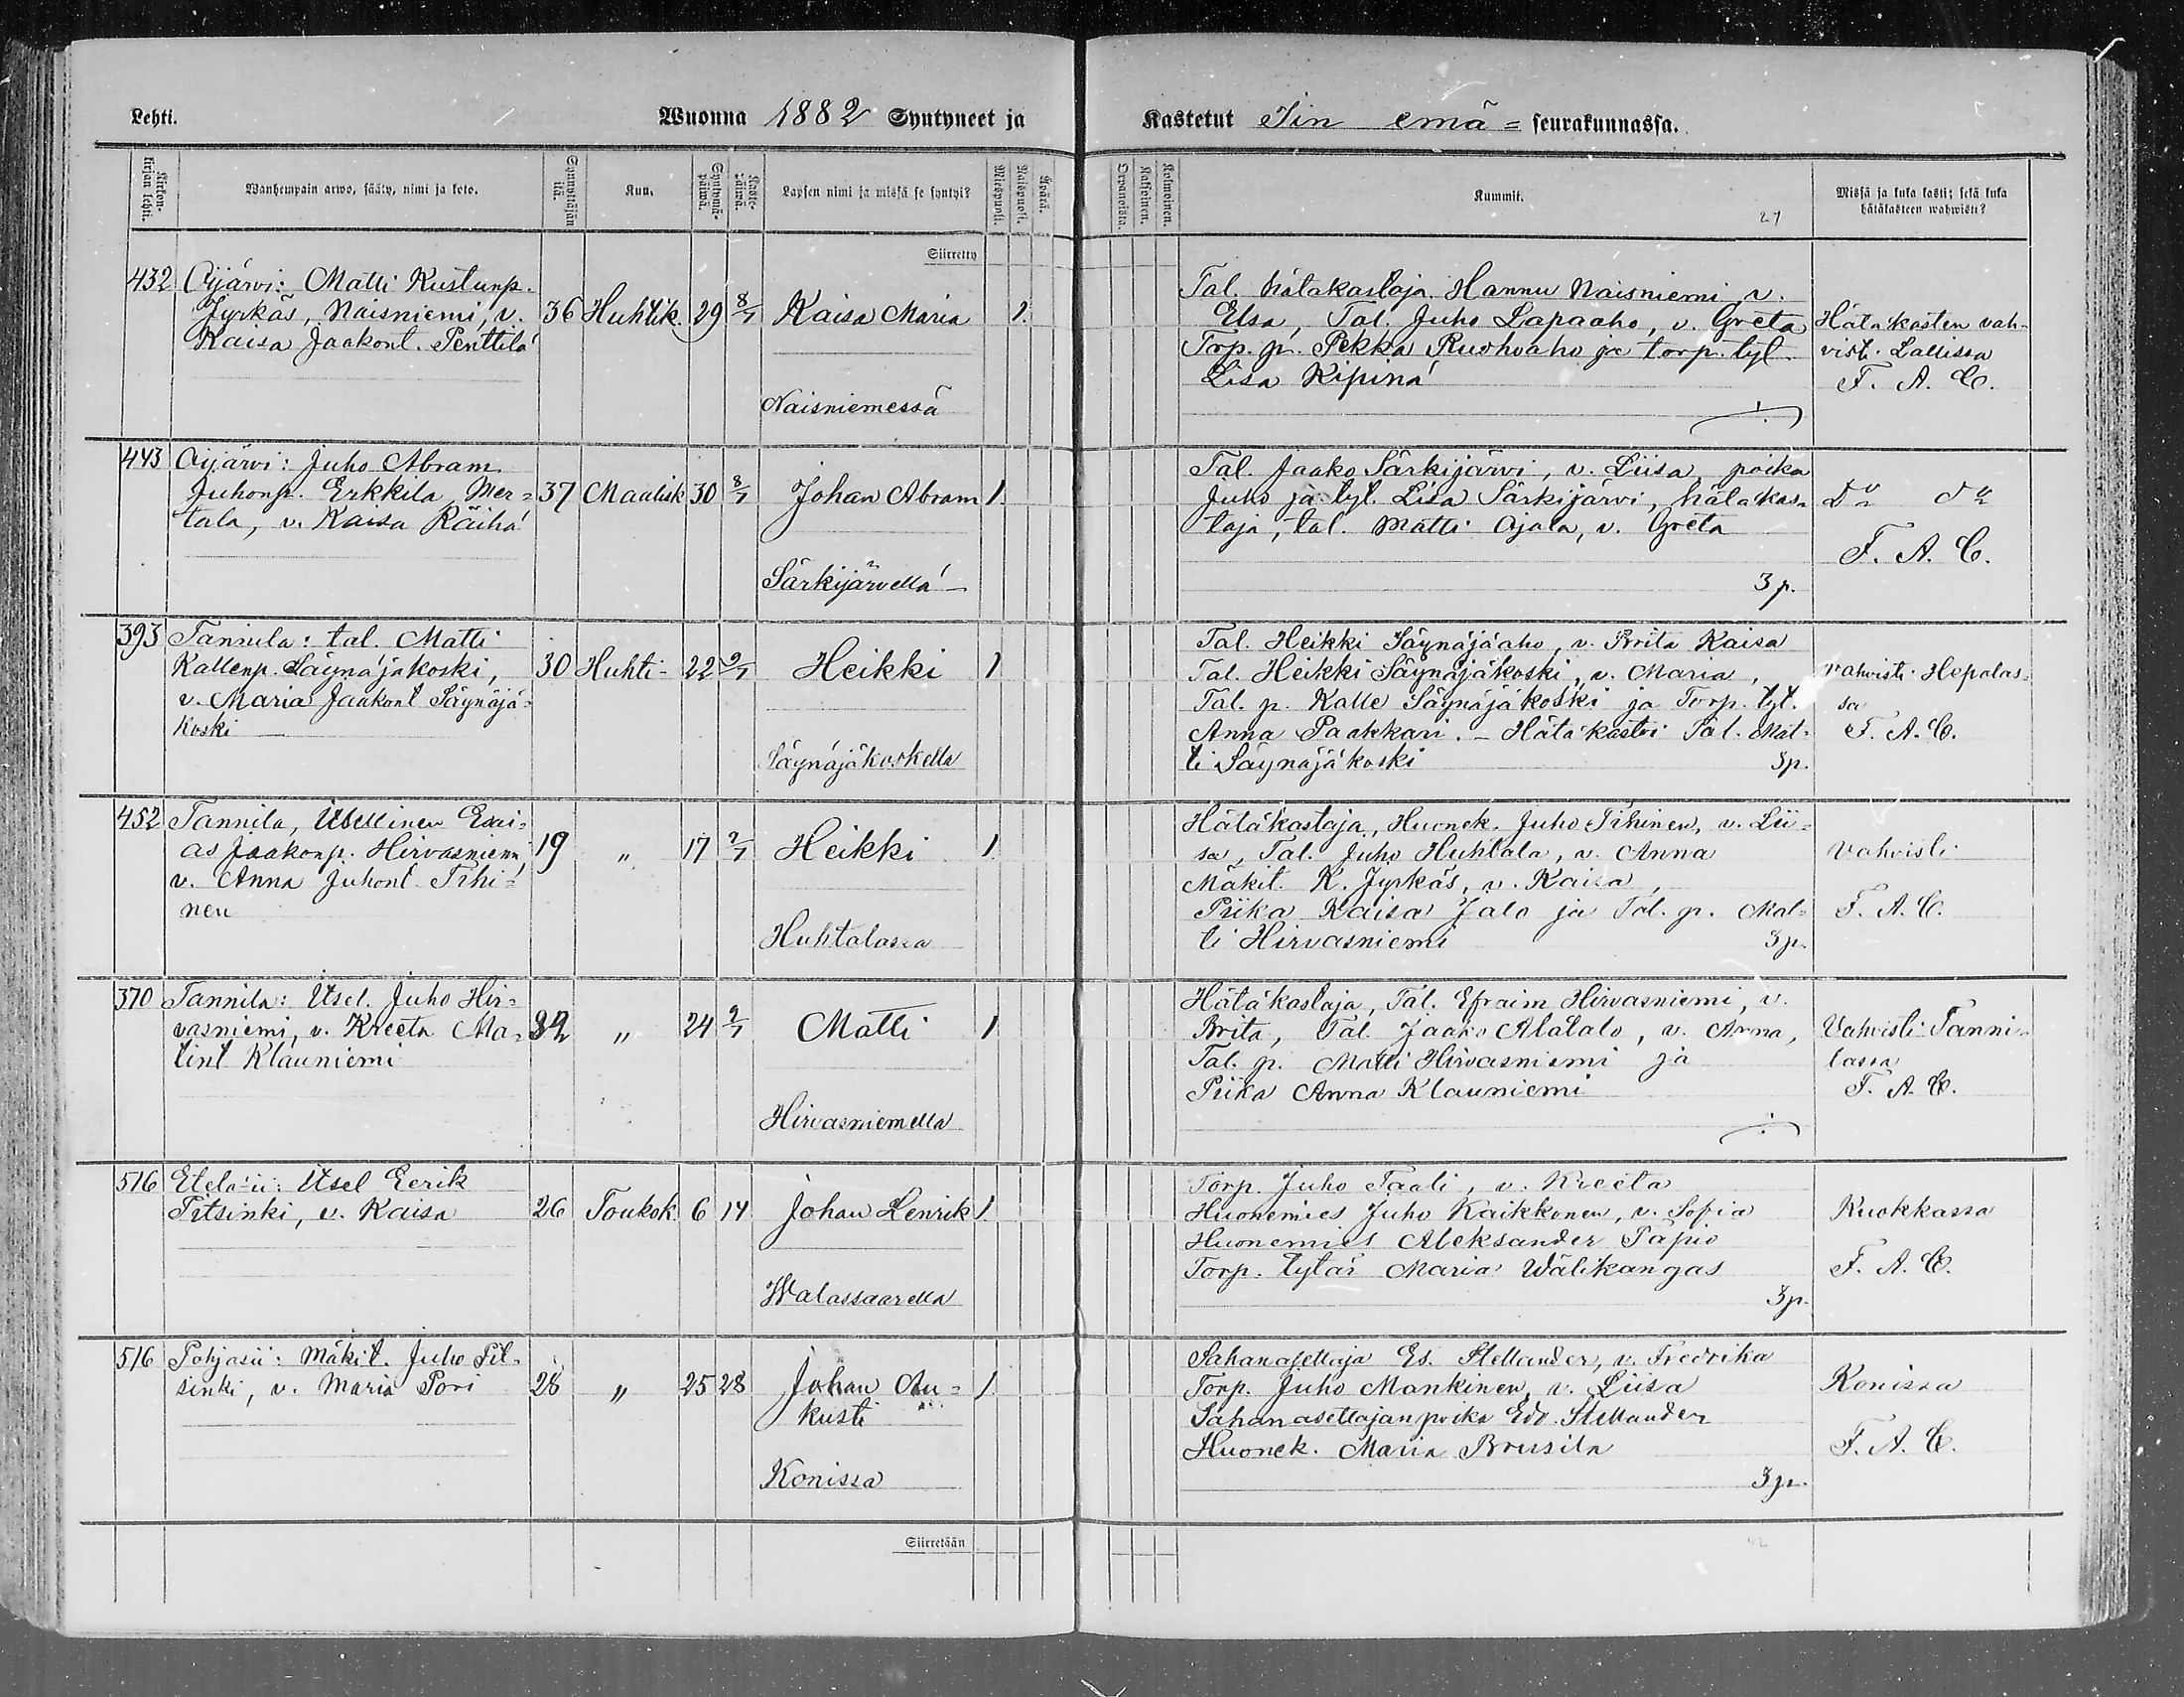 Lehti.
Wuonna 1882 Syntyneet ja
Kastetut Iin emä= seurakunnassa.
Kirkon-kirjan lehti.
Wanhempain arwo, sääty, nimi ja koto.
Synnyttäjän ikä.
Kuu.
Syntymä-päiwä.
Kaste-päiwä.
Lapsen nimi ja missä se syntyi?
Miespuoli.
Waispuoli.
Awioton.
Kaksoinen.
Kolmoinen.
Kummit.
27
Missä ja kuka kasti; sekä kuka hätäkasteen wahwisti?
Siirretty
432 Oijärvi: Matti Kustunp.
Jyrkäs, Naisniemi, v.
Kaisa Jaakont. Penttilä
36 Huhtik. 29 8/7 Kaisa Maria 1.
Naisniemessä
Tal. hätäkastaja Hannu Naisniemi v.
Elsa, Tal. Juho Lapaaho, v. Greta
Torp. p. Pekka Ruohoaho ja torp. tyt.
Lisa Kipinä
Hätäkasten vah-
visti Lallissa
F. A. C.
443 Oijärvi: Juho Abram
Juhonp. Erkkilä Mer=
tala, v. Kaisa Räihä
37 Maalisk 30 8/7 Johan Abram 1.
Särkijärvellä
Tal. Jaako Särkijärvi, v. Liisa, poika
Juho ja tyt. Lisa Särkijärvi, hätäkas=
taja, tal. Matti Ojala, v. Greta
3 p.
Do do
F. A. C.
393 Tannila: tal. Matti
Kallenp. Säynäjäkoski,
v. Maria Jaakont Säynäjä=
koski
30 Huhti- 22 9/7 Heikki 1
Säynäjäkoskella
Tal. Heikki Säynäjäaho, v. Brita Kaisa
Tal. Heikki Säynäjäkoski, v. Maria,
Tal. p. Kalle Säynäjäkoski ja Torp. tyt.
Anna Paakkari. - Hätäkastoi Tal. Mat=
ti Säynäjäkoski 3p.
vahvisti Hepolas=
sa
F. A. C.
452 Tannila, Itsellinen Esai=
as Jaakonp. Hirvasniemi,
v. Anna Juhont Tihi=
nen
19 " 17 9/7 Heikki 1.
Huhtalassa
Hätäkastaja, Huonek. Juho Tihinen, v. Lii=
sa, Tal. Juho Huhtala, v. Anna
Mäkit. K. Jyrkäs, v. Kaisa,
Piika Kaisa Jalo ja Tal. p. Mat=
ti Hirvasniemi 3p.
vahvisti
F. A. C.
370 Tannila: Itsel. Juho Hir=
vasniemi, v. Kreeta Ma=
tint Klauniemi
32 " 24 9/7 Matti 1.
Hirvasniemellä
Hätäkastaja, Tal. Efraim Hirvasniemi, v.
Brita, Tal. Jaako Alatalo, v. Anna,
Tal. p. Matti Hirvasniemi ja
Piika Anna Klauniemi
Vahvisti Tanni-
lassa
F. A. C.
516 Etelä-ii: Itsel Eerik
Pitsinki, v. Kaisa
26 Toukok. 6 14 Johan Henrik 1.
Walassaarella
Torp. Juho Taali, v. Kreeta
Huonemies Juho Kaikkonen, v. Sofia
Huonemies Aleksander Papio
Torp. tytär Maria Wälikangas
3p.
Kuokkassa
F. A. C.
516 Pohjasii: Mäkit. Juho Pit=
sinki, v. Maria Pori
28 " 25 28 Johan Au=
kusti
1.
Konissa
Sahanasettaja Es. Stellander, v. Fredrika
Torp. Juho Mankinen, v. Liisa
Sahanasettajanpoika Edv. Stellander
Huonek. Maria Brusila
3p.
Konissa
F. A. C.
Siirretään